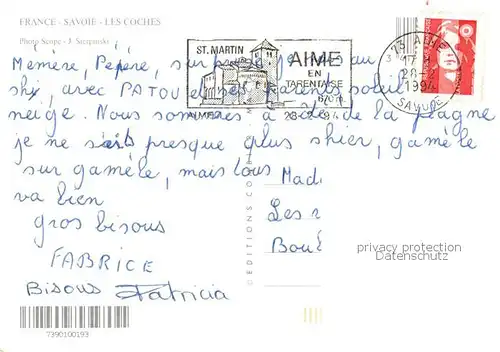 FRANCE - SAVOIE - LES COCHES
Photo Scope - J. Szczpanski
ST. MARTIN
AIME
EN
TARENTAISE
AIME
28-2-94
73 AIME
17 H
28-2
1994
SAVOIE
Mémère, Pépère, sur
au
ski, avec PATOU et
parents soleil
neige. Nous sommes à côté de la plagne
je ne sais presque plus skier, gamèle
sur gamèle, mais tous
va bien
gros bisous
FABRICE
Bisous Patricia
Mad
Les
Bou
EDITIONS
privacy protection
Datenschutz
7390100193